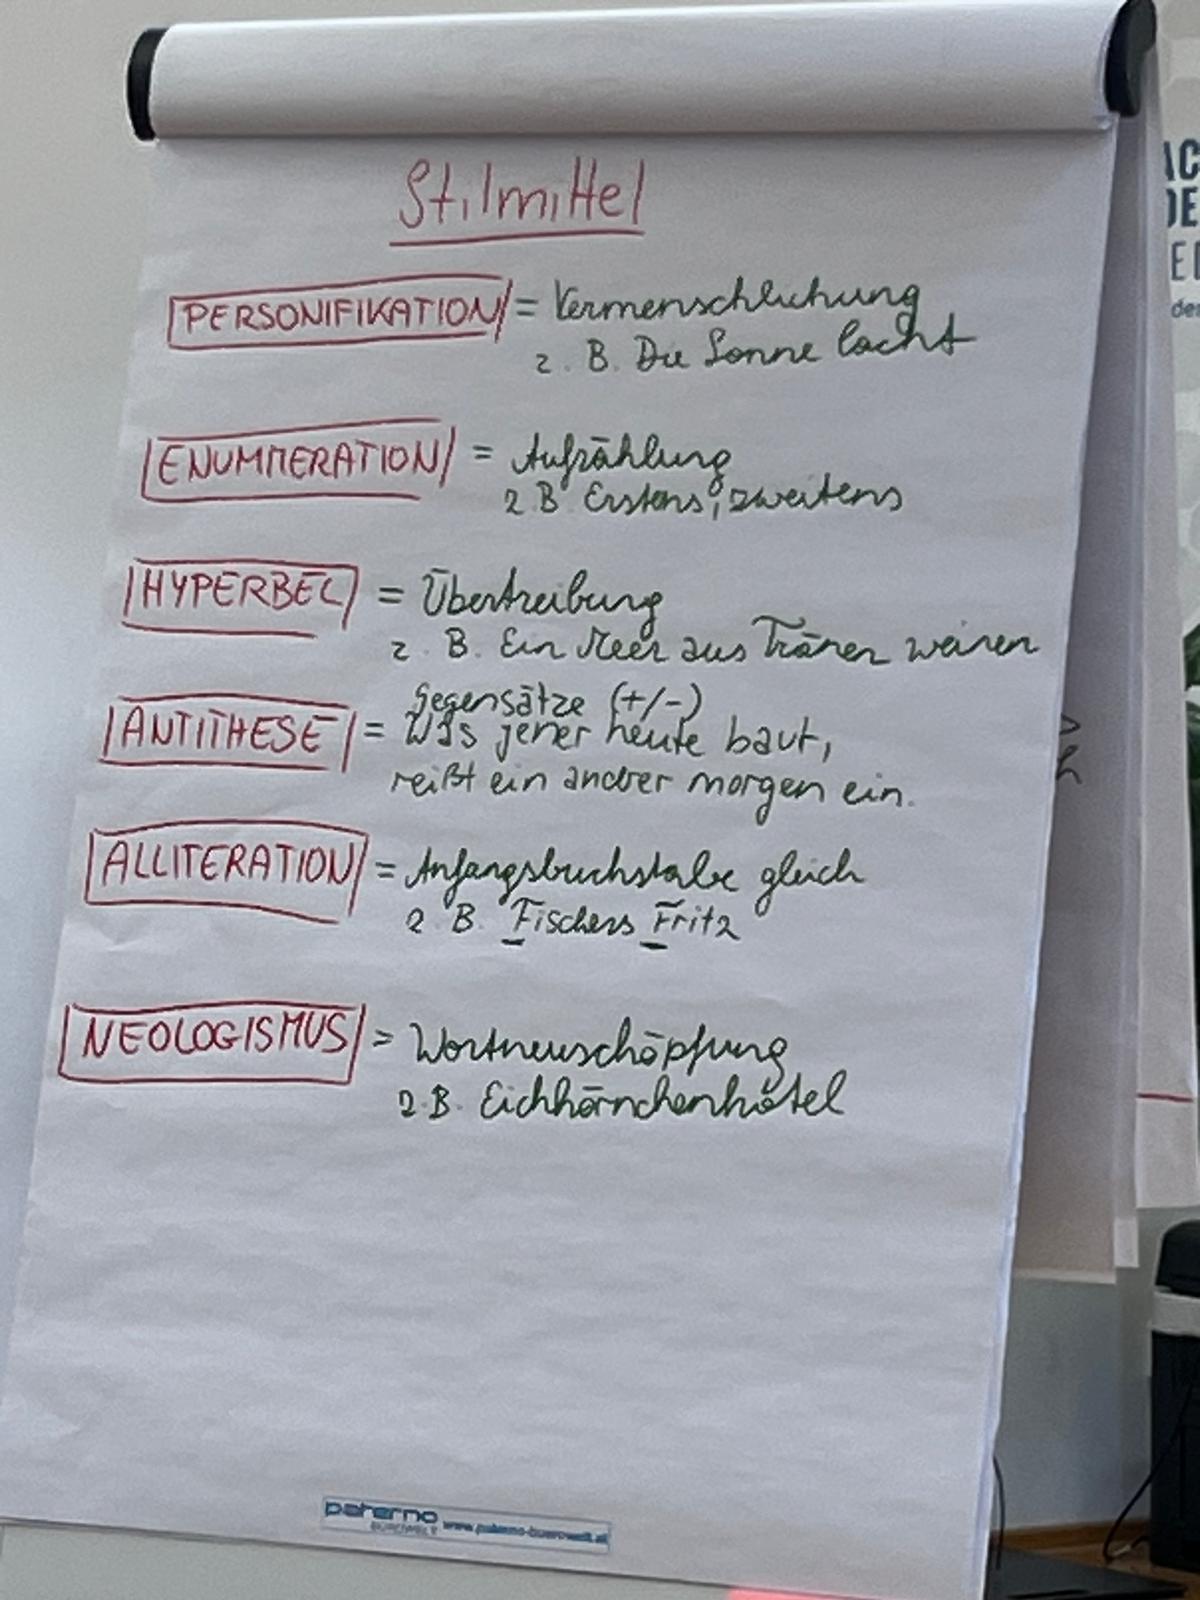 Stilmittel
PERSONIFIKATION = Vermenschlichung
z. B. Die Sonne lacht
ENUMMERATION = Aufzählung
z. B. Erstens, zweitens
HYPERBEL = Übertreibung
z. B. Ein Meer aus Tränen weinen
Gegensätze (+/-)
ANTITHESE = Was jener heute baut,
reißt ein andrer morgen ein.
ALLITERATION = Anfangsbuchstabe gleich
z. B. Fischers Fritz
NEOLOGISMUS = Wortneuschöpfung
z. B. Eichhörnchenhotel
paterno
BÜROWELT www.paterno-buerowelt.at